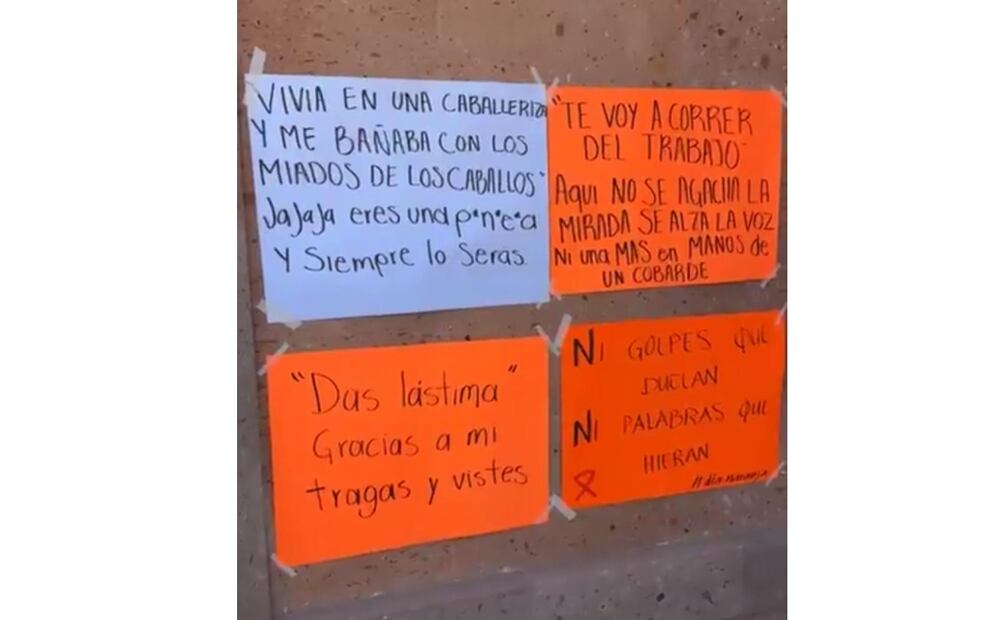 VIVIA EN UNA CABALLERIZA
Y ME BAÑABA CON LOS
MIADOS DE LOS CABALLOS"
JaJaJa eres una p*n*e*a
Y Siempre lo Serás.
"TE VOY A CORRER
DEL TRABAJO"
Aqui NO SE AGACHA LA
MIRADA SE ALZA LA VOZ
Ni una MAS en MANOS de
UN COBARDE
"Das lástima"
Gracias a mi
tragas y vistes
NI GOLPES QUE
DUELAN
NI PALABRAS QUE
HIERAN
# día naranja